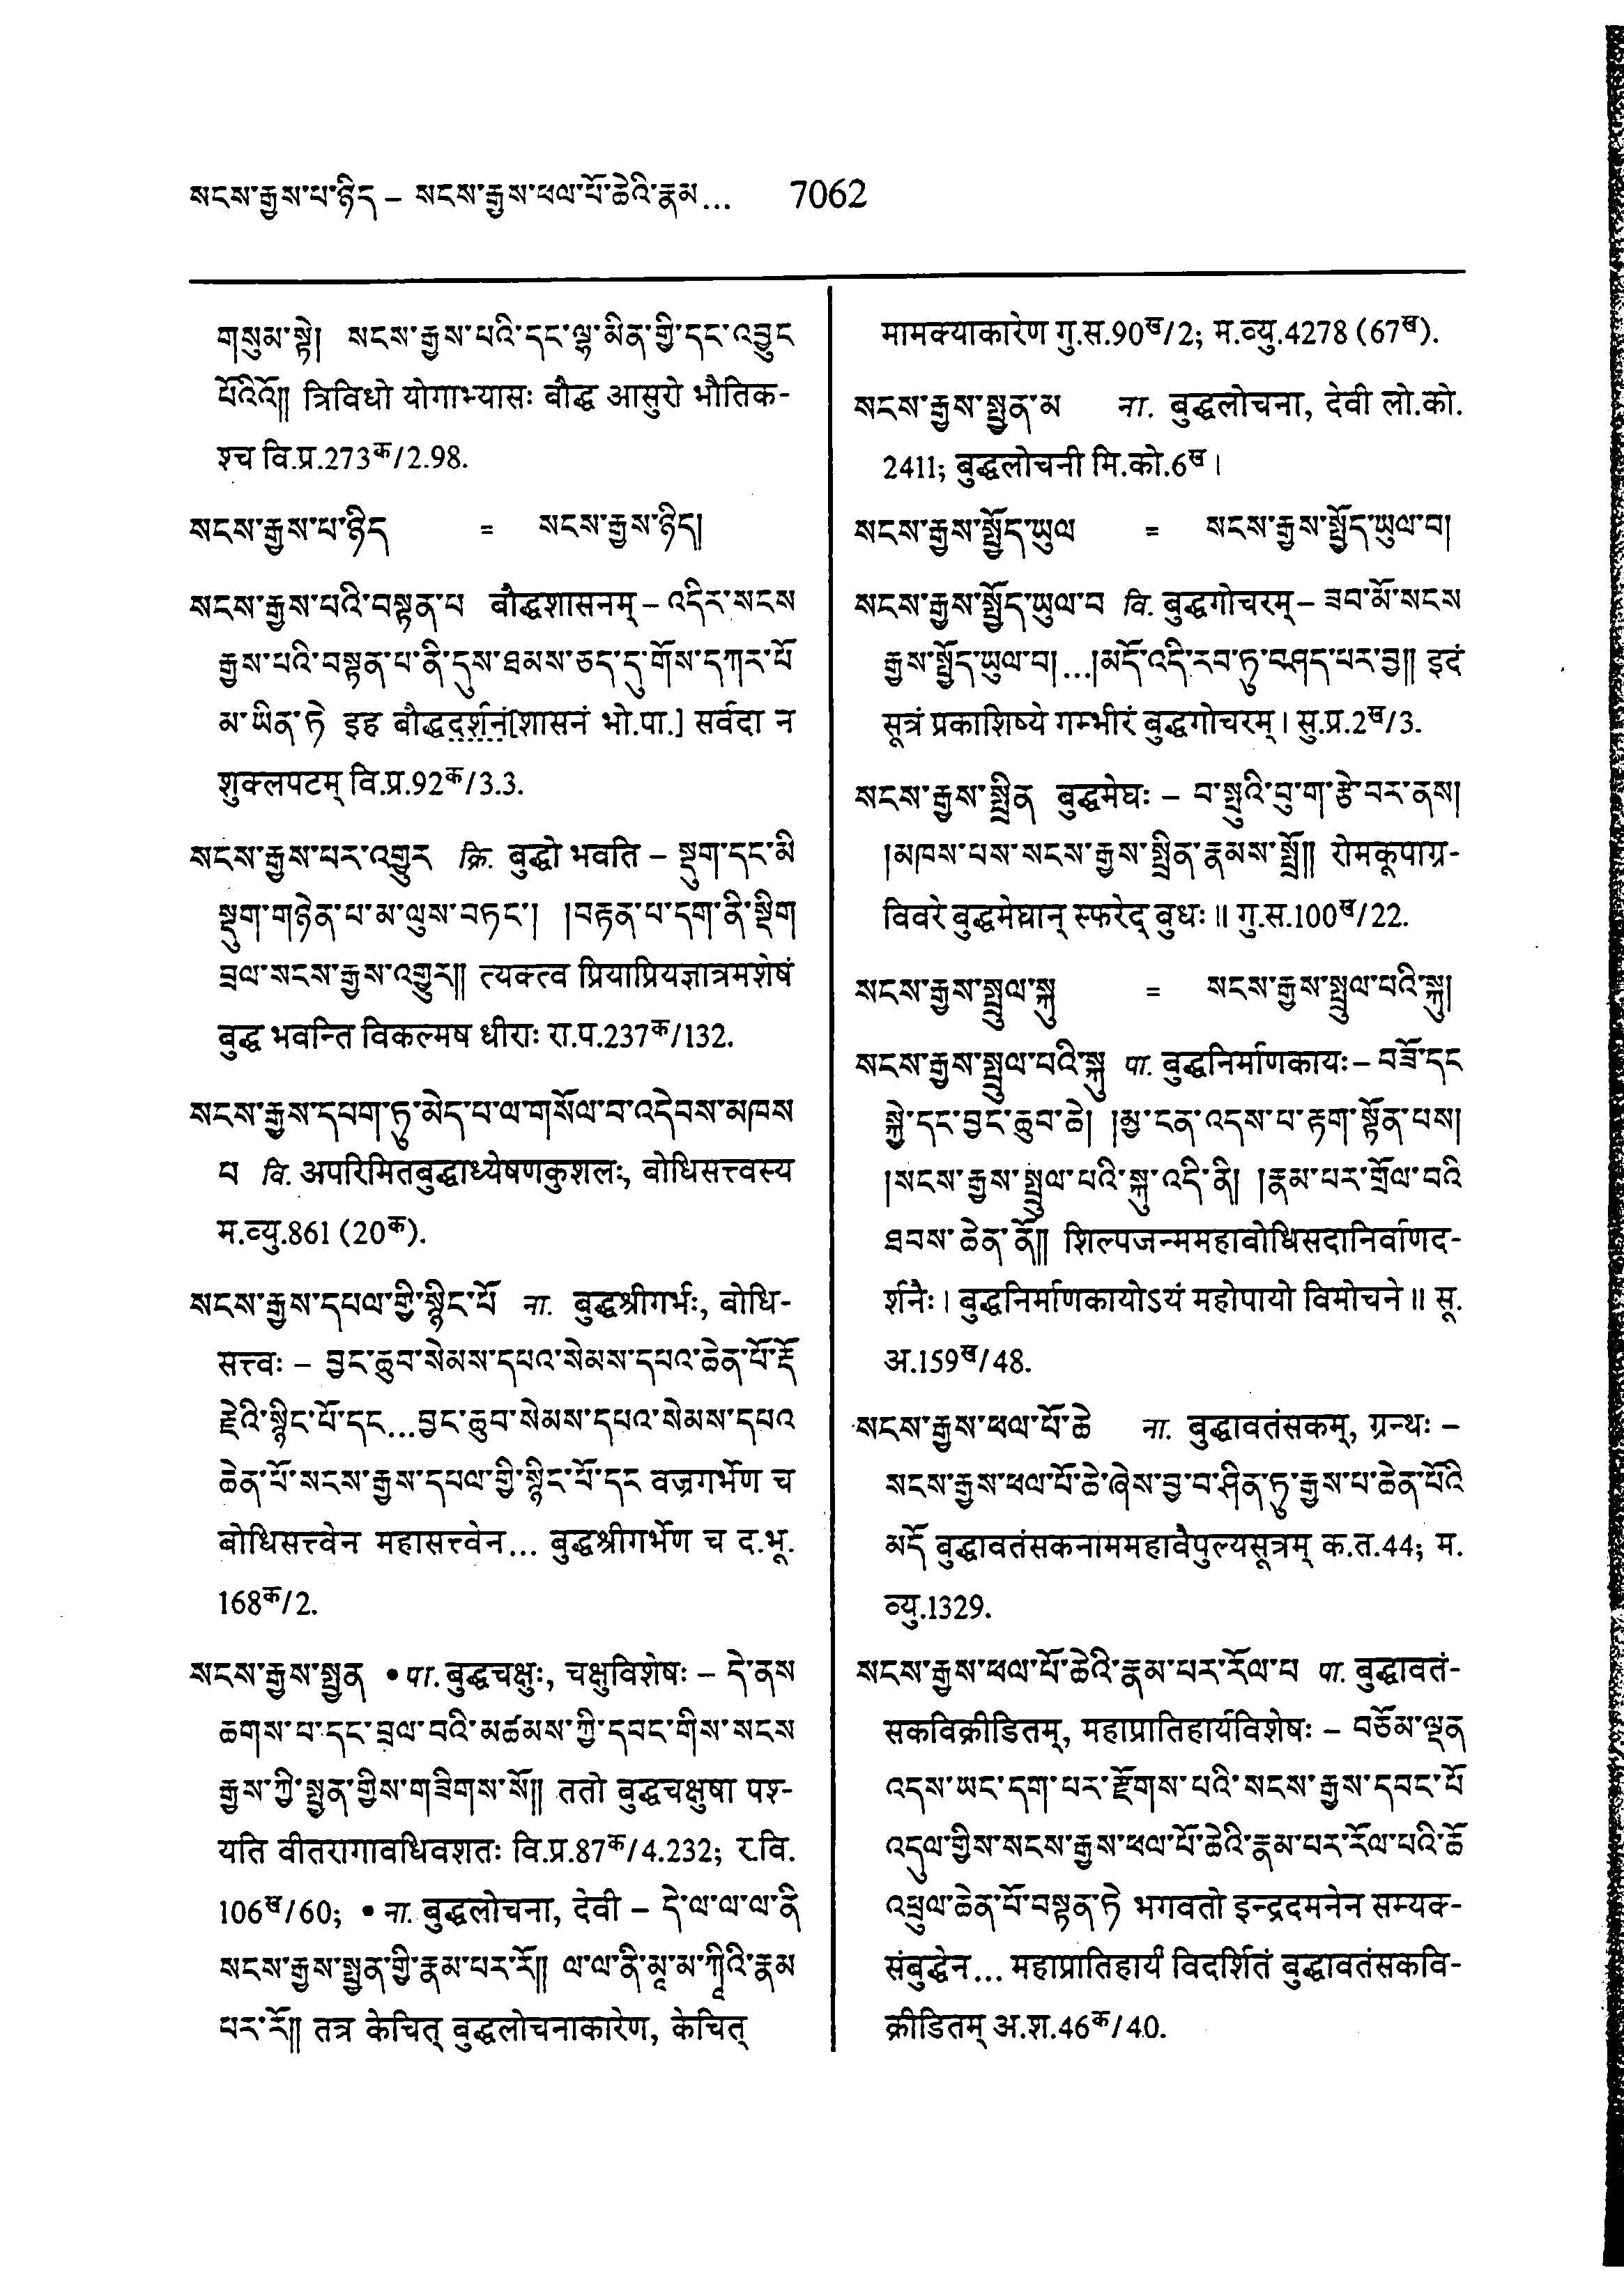 སངས་རྒྱས་པ་ཉིད – སངས་རྒྱས་ཕལ་པོ་ཆེའི་རྣམ... 7062
གསུམ་སྟེ། སངས་རྒྱས་པའི་དང་ལྷ་མིན་གྱི་དང་འབྱུང
པོའིའོ།། त्रिविधो योगाभ्यासः बौद्ध आसुरो भौतिक-
श्च वि.प्र.273क/2.98.
སངས་རྒྱས་པ་ཉིད = སངས་རྒྱས་ཉིད།
སངས་རྒྱས་པའི་བསྟན་པ बौद्धशासनम् – འདིར་སངས
རྒྱས་པའི་བསྟན་པ་ནི་དུས་ཐམས་ཅད་དུ་གོས་དཀར་པོ
མ་ཡིན་ཏེ इह बौद्धदर्शनं[शासनं भो.पा.] सर्वदा न
शुक्लपटम् वि.प्र.92क/3.3.
སངས་རྒྱས་པར་འགྱུར क्रि. बुद्धो भवति – སྡུག་དང་མི
སྡུག་གཉེན་པ་མ་ལུས་བཏང་། །བརྟན་པ་དག་ནི་སྡིག
བྲལ་སངས་རྒྱས་འགྱུར།། त्यक्त्व प्रियाप्रियज्ञात्रमशेषं
बुद्ध भवन्ति विकल्मष धीराः रा.प.237क/132.
སངས་རྒྱས་དཔག་ཏུ་མེད་པ་ལ་གསོལ་བ་འདེབས་མཁས
པ वि. अपरिमितबुद्धाध्येषणकुशलः, बोधिसत्त्वस्य
म.व्यु.861 (20क).
སངས་རྒྱས་དཔལ་གྱི་སྙིང་པོ ना. बुद्धश्रीगर्भः, बोधि-
सत्त्वः – བྱང་ཆུབ་སེམས་དཔའ་སེམས་དཔའ་ཆེན་པོ་རྡོ
རྗེའི་སྙིང་པོ་དང...བྱང་ཆུབ་སེམས་དཔའ་སེམས་དཔའ
ཆེན་པོ་སངས་རྒྱས་དཔལ་གྱི་སྙིང་པོ་དང वज्रगर्भेण च
बोधिसत्त्वेन महासत्त्वेन... बुद्धश्रीगर्भेण च द.भू.
168क/2.
སངས་རྒྱས་སྤྱན • पा. बुद्धचक्षुः, चक्षुविशेषः – དེ་ནས
ཆགས་པ་དང་བྲལ་བའི་མཚམས་ཀྱི་དབང་གིས་སངས
རྒྱས་ཀྱི་སྤྱན་གྱིས་གཟིགས་སོ།། ततो बुद्धचक्षुषा पश्-
यति वीतरागावधिवशतः वि.प्र.87क/4.232; र.वि.
106ख/60; • ना. बुद्धलोचना, देवी – དེ་ལ་ལ་ལ་ནི
སངས་རྒྱས་སྤྱན་གྱི་རྣམ་པར་རོ།། ལ་ལ་ནི་མཱ་མ་ཀཱིའི་རྣམ
པར་རོ།། तत्र केचित् बुद्धलोचनाकारेण, केचित्
मामक्याकारेण गु.स.90ख/2; म.व्यु.4278 (67ख).
སངས་རྒྱས་སྤྱན་མ ना. बुद्धलोचना, देवी लो.को.
2411; बुद्धलोचनी मि.को.6ख ।
སངས་རྒྱས་སྤྱོད་ཡུལ = སངས་རྒྱས་སྤྱོད་ཡུལ་བ།
སངས་རྒྱས་སྤྱོད་ཡུལ་བ वि. बुद्धगोचरम् – ཟབ་མོ་སངས
རྒྱས་སྤྱོད་ཡུལ་བ།...།མདོ་འདི་རབ་ཏུ་བཤད་པར་བྱ།། इदं
सूत्रं प्रकाशिष्ये गम्भीरं बुद्धगोचरम् । सु.प्र.2ख/3.
སངས་རྒྱས་སྤྲིན बुद्धमेघः – བ་སྤུའི་བུ་ག་རྩེ་བར་ནས།
།མཁས་པས་སངས་རྒྱས་སྤྲིན་རྣམས་སྤྲོ།། रोमकूपाग्र-
विवरे बुद्धमेघान् स्फरेद् बुधः ॥ गु.स.100ख/22.
སངས་རྒྱས་སྤྲུལ་སྐུ = སངས་རྒྱས་སྤྲུལ་པའི་སྐུ།
སངས་རྒྱས་སྤྲུལ་པའི་སྐུ पा. बुद्धनिर्माणकायः – བཟོ་དང
སྐྱེ་དང་བྱང་ཆུབ་ཆེ། །མྱ་ངན་འདས་པ་རྟག་སྟོན་པས།
།སངས་རྒྱས་སྤྲུལ་པའི་སྐུ་འདི་ནི། །རྣམ་པར་གྲོལ་བའི
ཐབས་ཆེན་ནོ།། शिल्पजन्ममहाबोधिसदानिर्वाणद-
र्शनैः । बुद्धनिर्माणकायोऽयं महोपायो विमोचने ॥ सू.
अ.159ख/48.
སངས་རྒྱས་ཕལ་པོ་ཆེ ना. बुद्धावतंसकम्, ग्रन्थः –
སངས་རྒྱས་ཕལ་པོ་ཆེ་ཞེས་བྱ་བ་ཤིན་ཏུ་རྒྱས་པ་ཆེན་པོའི
མདོ बुद्धावतंसकनाममहावैपुल्यसूत्रम् क.त.44; म.
व्यु.1329.
སངས་རྒྱས་ཕལ་པོ་ཆེའི་རྣམ་པར་རོལ་པ पा. बुद्धावतं-
सकविक्रीडितम्, महाप्रातिहार्यविशेषः – བཅོམ་ལྡན
འདས་ཡང་དག་པར་རྫོགས་པའི་སངས་རྒྱས་དབང་པོ
འདུལ་གྱིས་སངས་རྒྱས་ཕལ་པོ་ཆེའི་རྣམ་པར་རོལ་པའི་ཆོ
འཕྲུལ་ཆེན་པོ་བསྟན་ཏེ भगवतो इन्द्रदमनेन सम्यक्-
संबुद्धेन... महाप्रातिहार्यं विदर्शितं बुद्धावतंसकवि-
क्रीडितम् अ.श.46क/40.